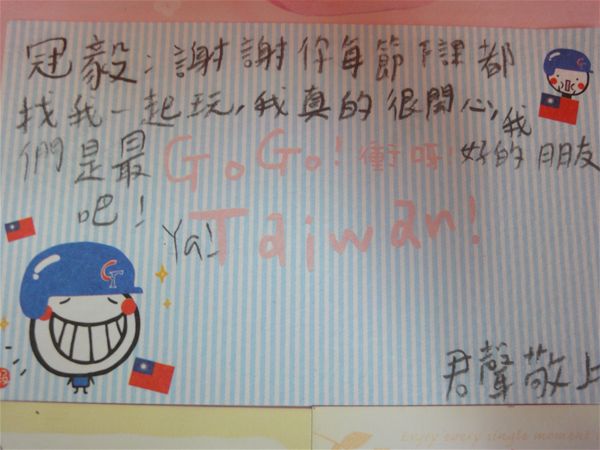 冠毅：謝謝你每節下課都
找我一起玩，我真的很開心，我
們是最 好的朋友
吧！
GoGo! 衝呀!
Ya!
Taiwan!
CT
君聲敬上
Enjoy every single moment